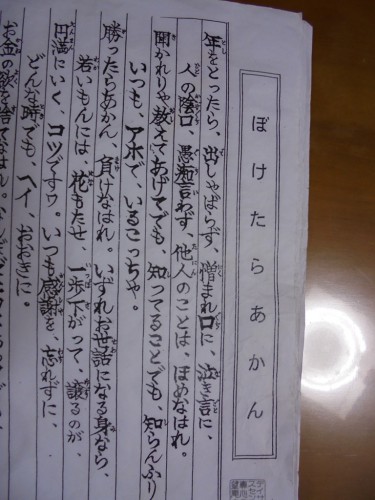 ぼけたらあかん
年をとったら、出しゃばらず、憎まれ口に、泣き言に、
人の陰口、愚痴言わず、他人のことは、ほめなはれ。
聞かれりゃ教えてあげてでも、知ってることでも、知らんふり
いつも、アホで、いるこっちゃ。
勝ったらあかん、負けなはれ。いずれお世話になる身なら、
若いもんには、花もたせ、一歩下がって、譲るのが、
円満にいく、コツですワ。いつも感謝を、忘れずに、
どんな時でも、ヘイ、おおきに。
お金の欲を捨てなはれ。